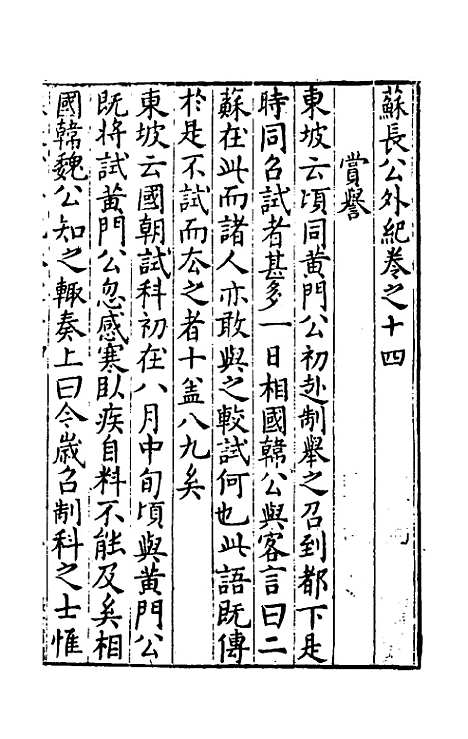 蘇長公外紀卷之十四
賞譽
東坡云頃同黃門公初赴制舉之召到都下是
時同召試者甚多一日相國韓公與客言曰二
蘇在此而諸人亦敢與之較試何也此語既傳
於是不試而去之者十盖八九矣
東坡云國朝試科初在八月中旬頃與黃門公
既將試黃門公忽感寒臥疾自料不能及矣相
國韓魏公知之輙奏上曰今歲召制科之士惟